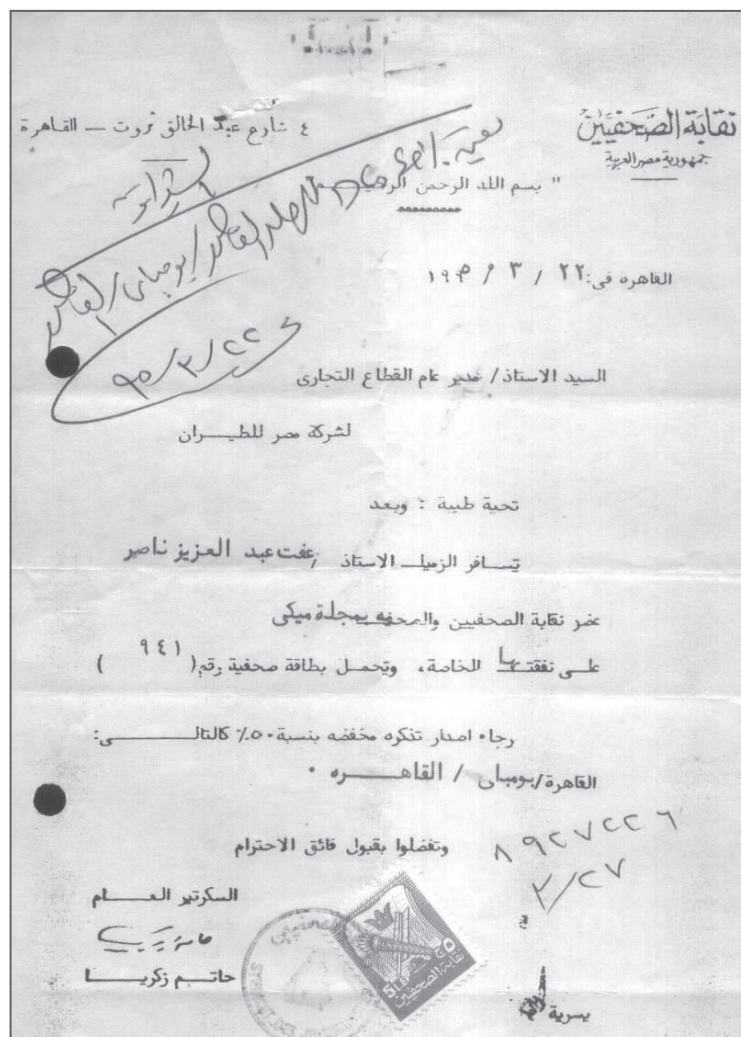 نقابة الصحفيين
جمهورية مصر العربية
٤ شارع عبد الخالق ثروت — القاهرة
" بسم الله الرحمن الرحيم
القاهره فى: ٢٢ / ٣ / ١٩٩٥
القاهرة / بومباى / القاهرة
٩٥/٣/٢٢
السيد الاستاذ/ مدير عام القطاع التجارى
لشركة مصر للطيـــران
تحية طيبة : وبعد
تسافر الزميلــ الاستاذ / عفت عبد العزيز ناصر
عضو نقابة الصحفيين والصحفيه بمجلة ميكى
علـى نفقتـها الخاصة، وتحمل بطاقة صحفية رقم( ٩٤١ )
رجاء اصدار تذكره مخفضه بنسبة ٥٠٪ كالتالــــــى:
القاهرة/بومباى / القاهـــره ٠
وتفضلوا بقبول فائق الاحترام
٨٩٢٧٢٢٦
٣/٢٧
السكرتير العـــام
حاتــم زكريـــا
٥
نقابة الصحفيين
يسرية